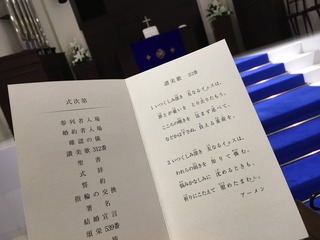 式次第
参列者入場
婚約者入場
確認の儀
讃美歌 312番
聖書
式辞
誓約
指輪の交換
署名
結婚宣言
頌栄 539番
讃美歌 312番
1 いつくしみ深き 友なるイエスは、
罪とが憂いを とり去りたもう。
こころの嘆きを 包まず述べて、
などかは下ろさぬ、負える重荷を。
2 いつくしみ深き 友なるイエスは、
われらの弱きを 知りて憐む。
悩みかなしみに 沈めるときも、
祈りにこたえて 慰めたまわん。
アーメン